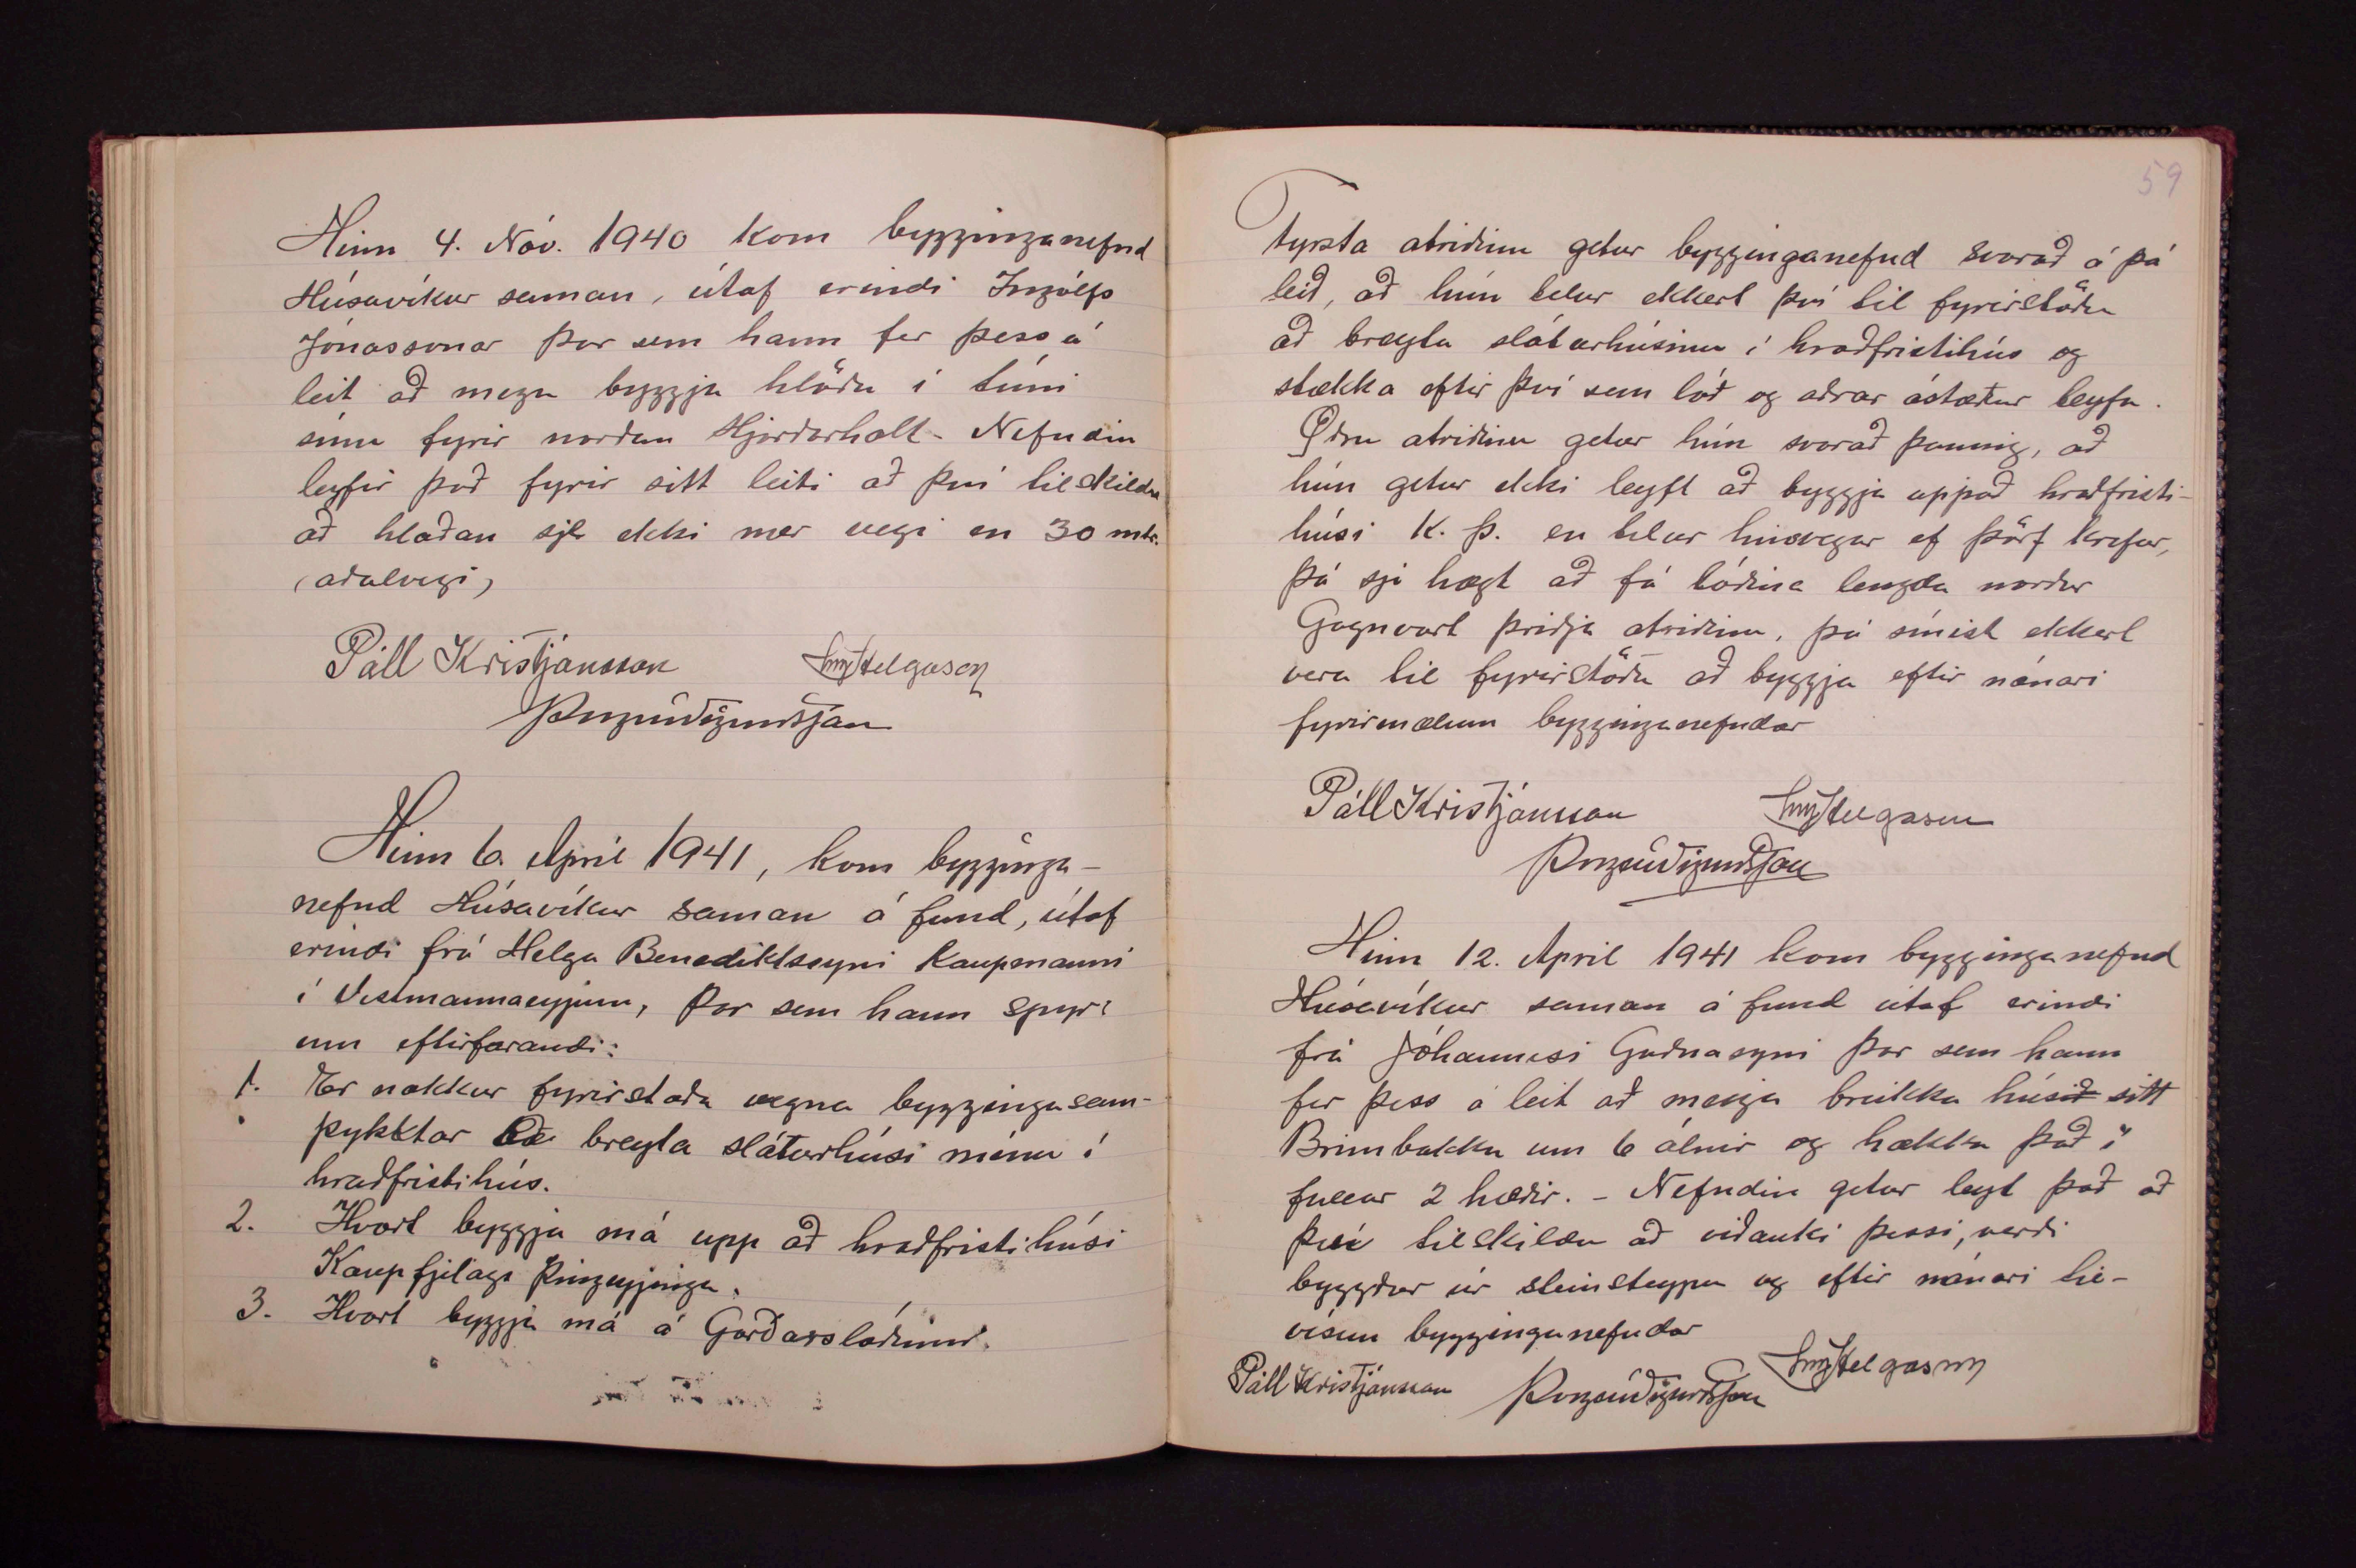 Hinn 4. Nóv. 1940 kom bygginganefnd
Húsavíkur saman, útaf erindi Ingólfs
Jónassonar þar sem hann fer þess á
leit að mega byggja hlöðu í túni
sínu fyrir norðan Hjarðarholt - Nefndin
leyfir það fyrir sitt leiti að því tilskildu
að hlaðan sje ekki nær vegi en 30 mtr.
(aðalvegi)
Páll Kristjánsson Helgason
Hinn 6. Apríl 1941, kom bygginga-
nefnd Húsavíkur saman á fund, útaf
erindi frá Helga Benediktssyni Kaupmanni
í Vestmannaeyjum, þar sem hann spyr
um eftirfarandi:
1. Er nokkur fyrirstaða vegna bygginga sam-
þykktar að breyta sláturhúsi mínu í
hraðfristihús.
2. Hvort byggja má upp að hraðfristihúsi
Kaupfjelags Þingeyinga.
3. Hvort byggja má á Garðarslóðinni.
59
Fyrsta atriðinu getur bygginganefnd svarað á þá
leið, að hún telur ekkert því til fyrirstöðu
að breyta sláturhúsinu í hraðfristihús og
stækka eftir því sem lóð og aðrar ástæður leyfa.
Öðru atriðinu getur hún svarað þannig, að
hún getur ekki leyft að byggja uppað hraðfristi-
húsi K. Þ. en telur hinsvegar ef þörf krefur,
þá sje hægt að fá lóðina lengda norður
Gagnvart þriðja atriðinu, þá sínist ekkert
vera til fyrirstöðu að byggja eftir nánari
fyrirmælum bygginganefndar
Páll Kristjánsson Helgason
Hinn 12. Apríl 1941 kom bygginganefnd
Húsavíkur saman á fund útaf erindi
frá Jóhannesi Guðnasyni þar sem hann
fer þess á leit að meiga breikka húsið sitt
Brimbakka um 6 álnir og hækka það í
fullar 2 hæðir. - Nefndin getur leyt það að
því tilskildu að viðauki þessi, verði
byggður úr steinsteypu og eftir nánari til-
vísun bygginganefndar
Páll Kristjánsson Helgason